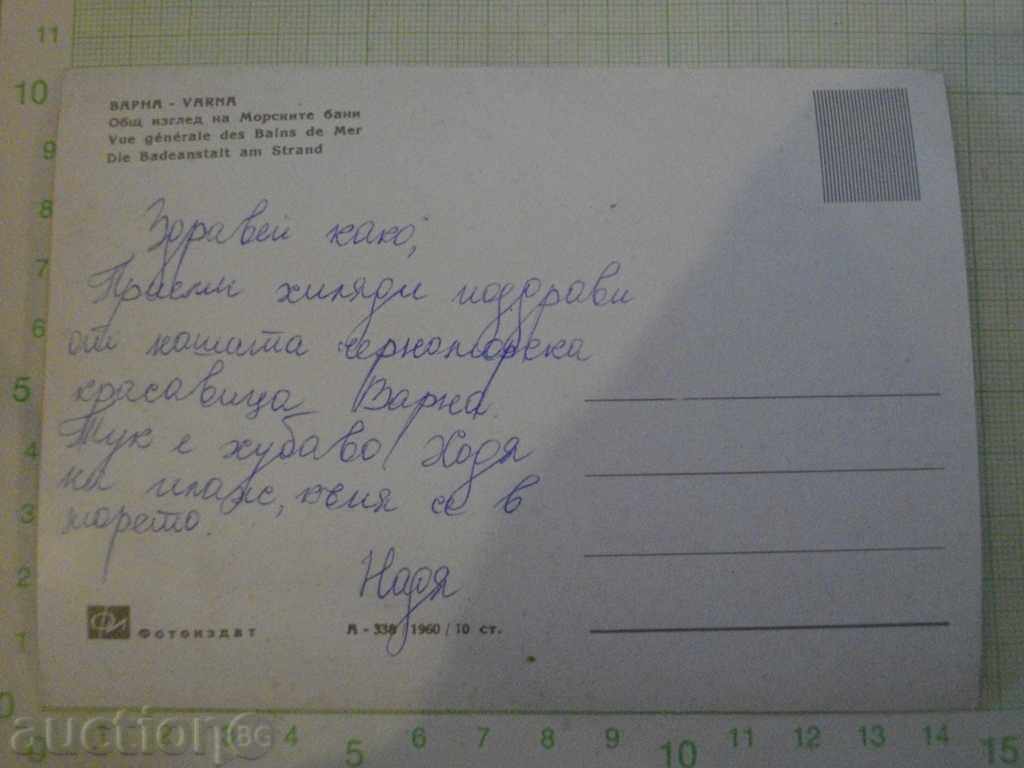 ВАРНА - VARNA
Общ изглед на Морските бани
Vue générale des Bains de Mer
Die Badeanstalt am Strand
Здравей како,
Приеми хиляди поздрави
от нашата черноморска
красавица Варна.
Тук е хубаво. Ходя
на плаж, къпя се в
морето.
Надя
Фотоиздат
А - 338 / 1960 / 10 ст.
11
10
9
8
7
6
5
4
3
2
1
0
0 1 2 3 4 5 6 7 8 9 10 11 12 13 14 15
auction BG